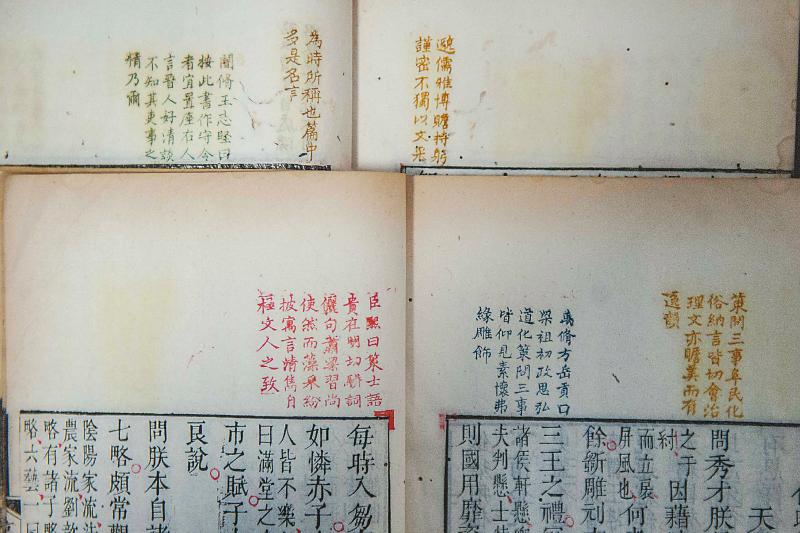 為時所稱也篇中
多是名言
閣脩王志堅曰
按此書作守令
者宜置座右人
言晉人好清談
不知其吏事之
精乃爾
遜儒雅博贍持躬
謹密不獨以文采
臣熙曰策士語
貴在明切駢詞
儷句蕭梁習尚
使然而藻采紛
披寓言情雋自
極文人之致
每時入芻
如憐赤子
人皆不樂
曰滿堂之
市之賦子
良說
問朕本自諸
七略頗常觀
陰陽家流法
農家流劉歆
略有諸子略
略六藝一曰
策問三事阜民化
俗納言皆切會治
理文亦贍美而有
逸韻
脩方岳貢曰
梁祖初政思弘
道化策問三事
皆仰見素懷弗
緣雕飾
天
問秀才朕
之于因藉
紂
而立扆何
屏風也
餘斲雕刓
三王之禮
諸侯軒懸
夫判懸士
則國用靡